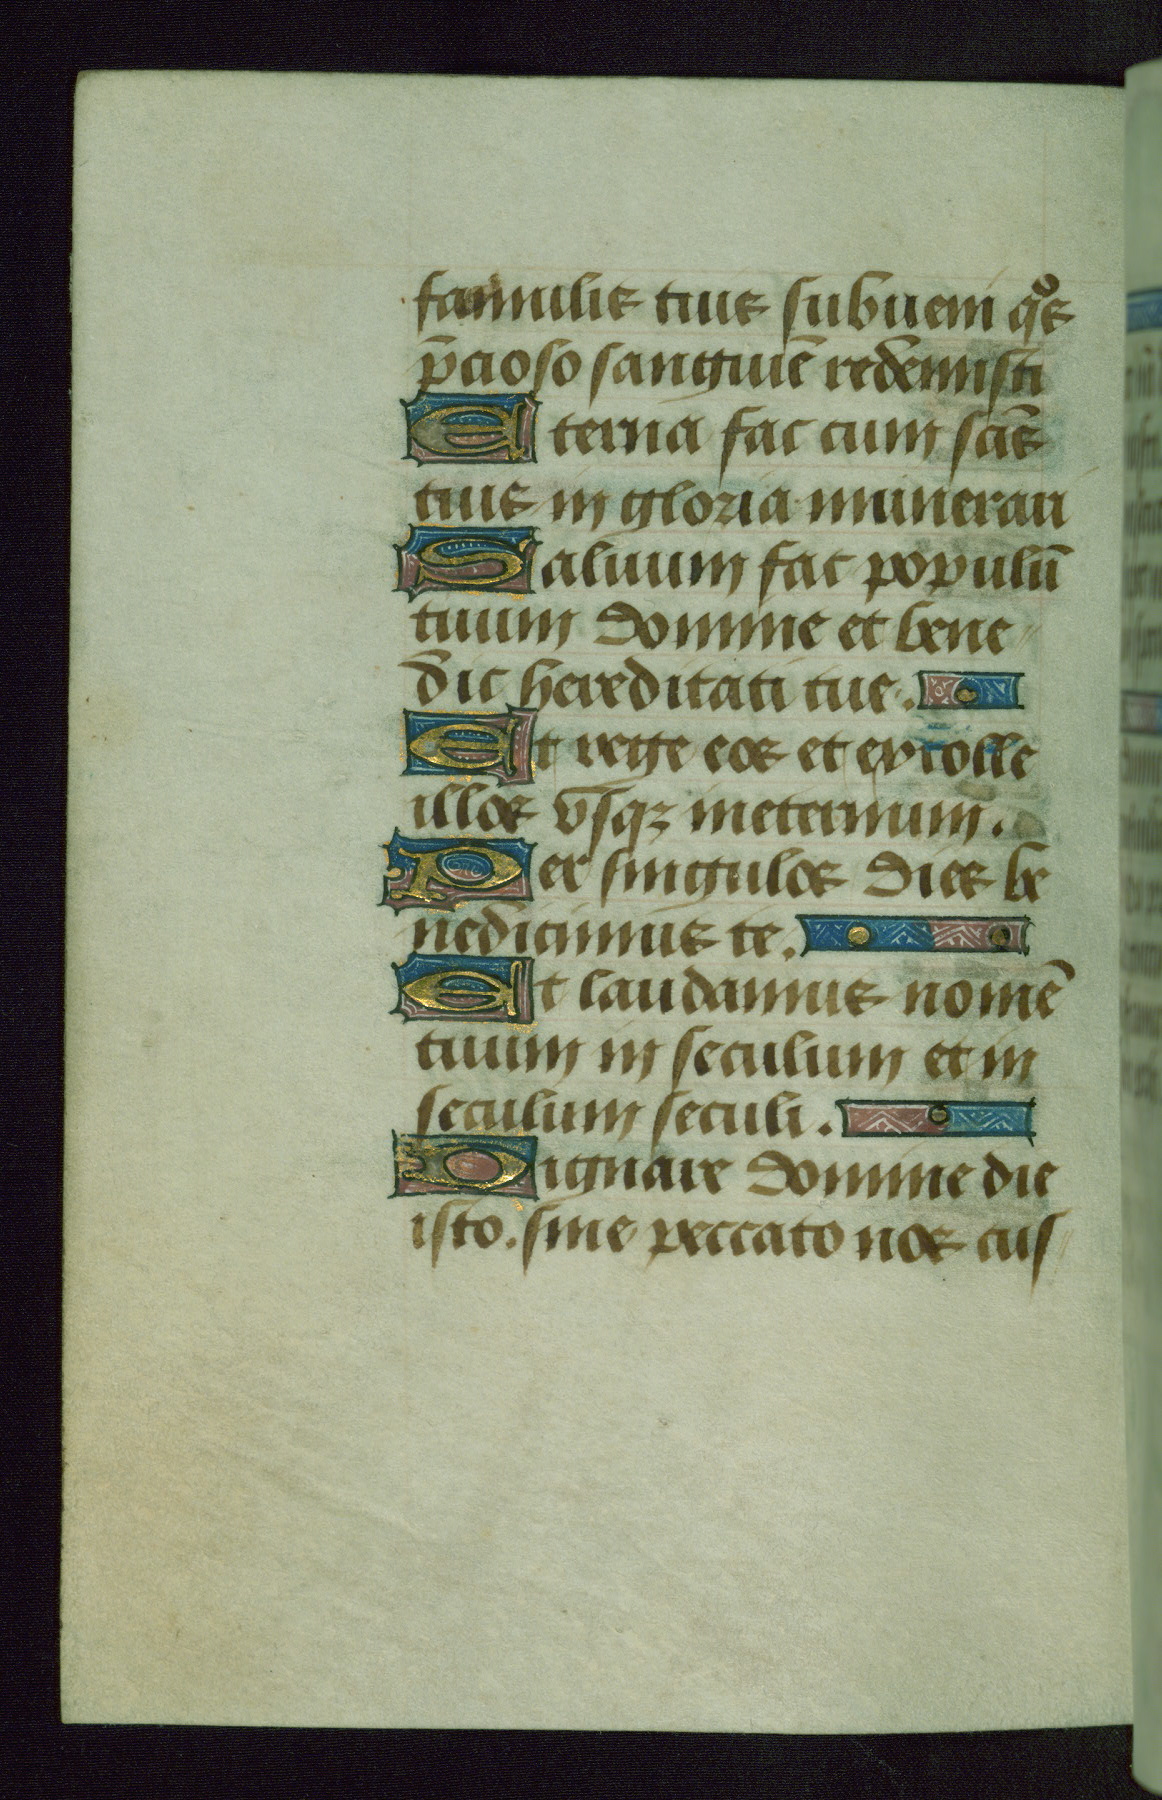 famulis tuis subueni qͦs
p̄cioso sanguiē redemisti
Eterna fac cum scīs
tuis in gloria munerari
Saluum fac populū
tuum domine et bene
dīc hereditati tue.
Et rege eos et extolle
illos vsqꝫ ineternum.
Per singulos dies be
nedicimus te.
Et laudamus nomē
tuum in seculum et in
seculum seculi.
Dignare domine die
isto. sine peccato nos cus